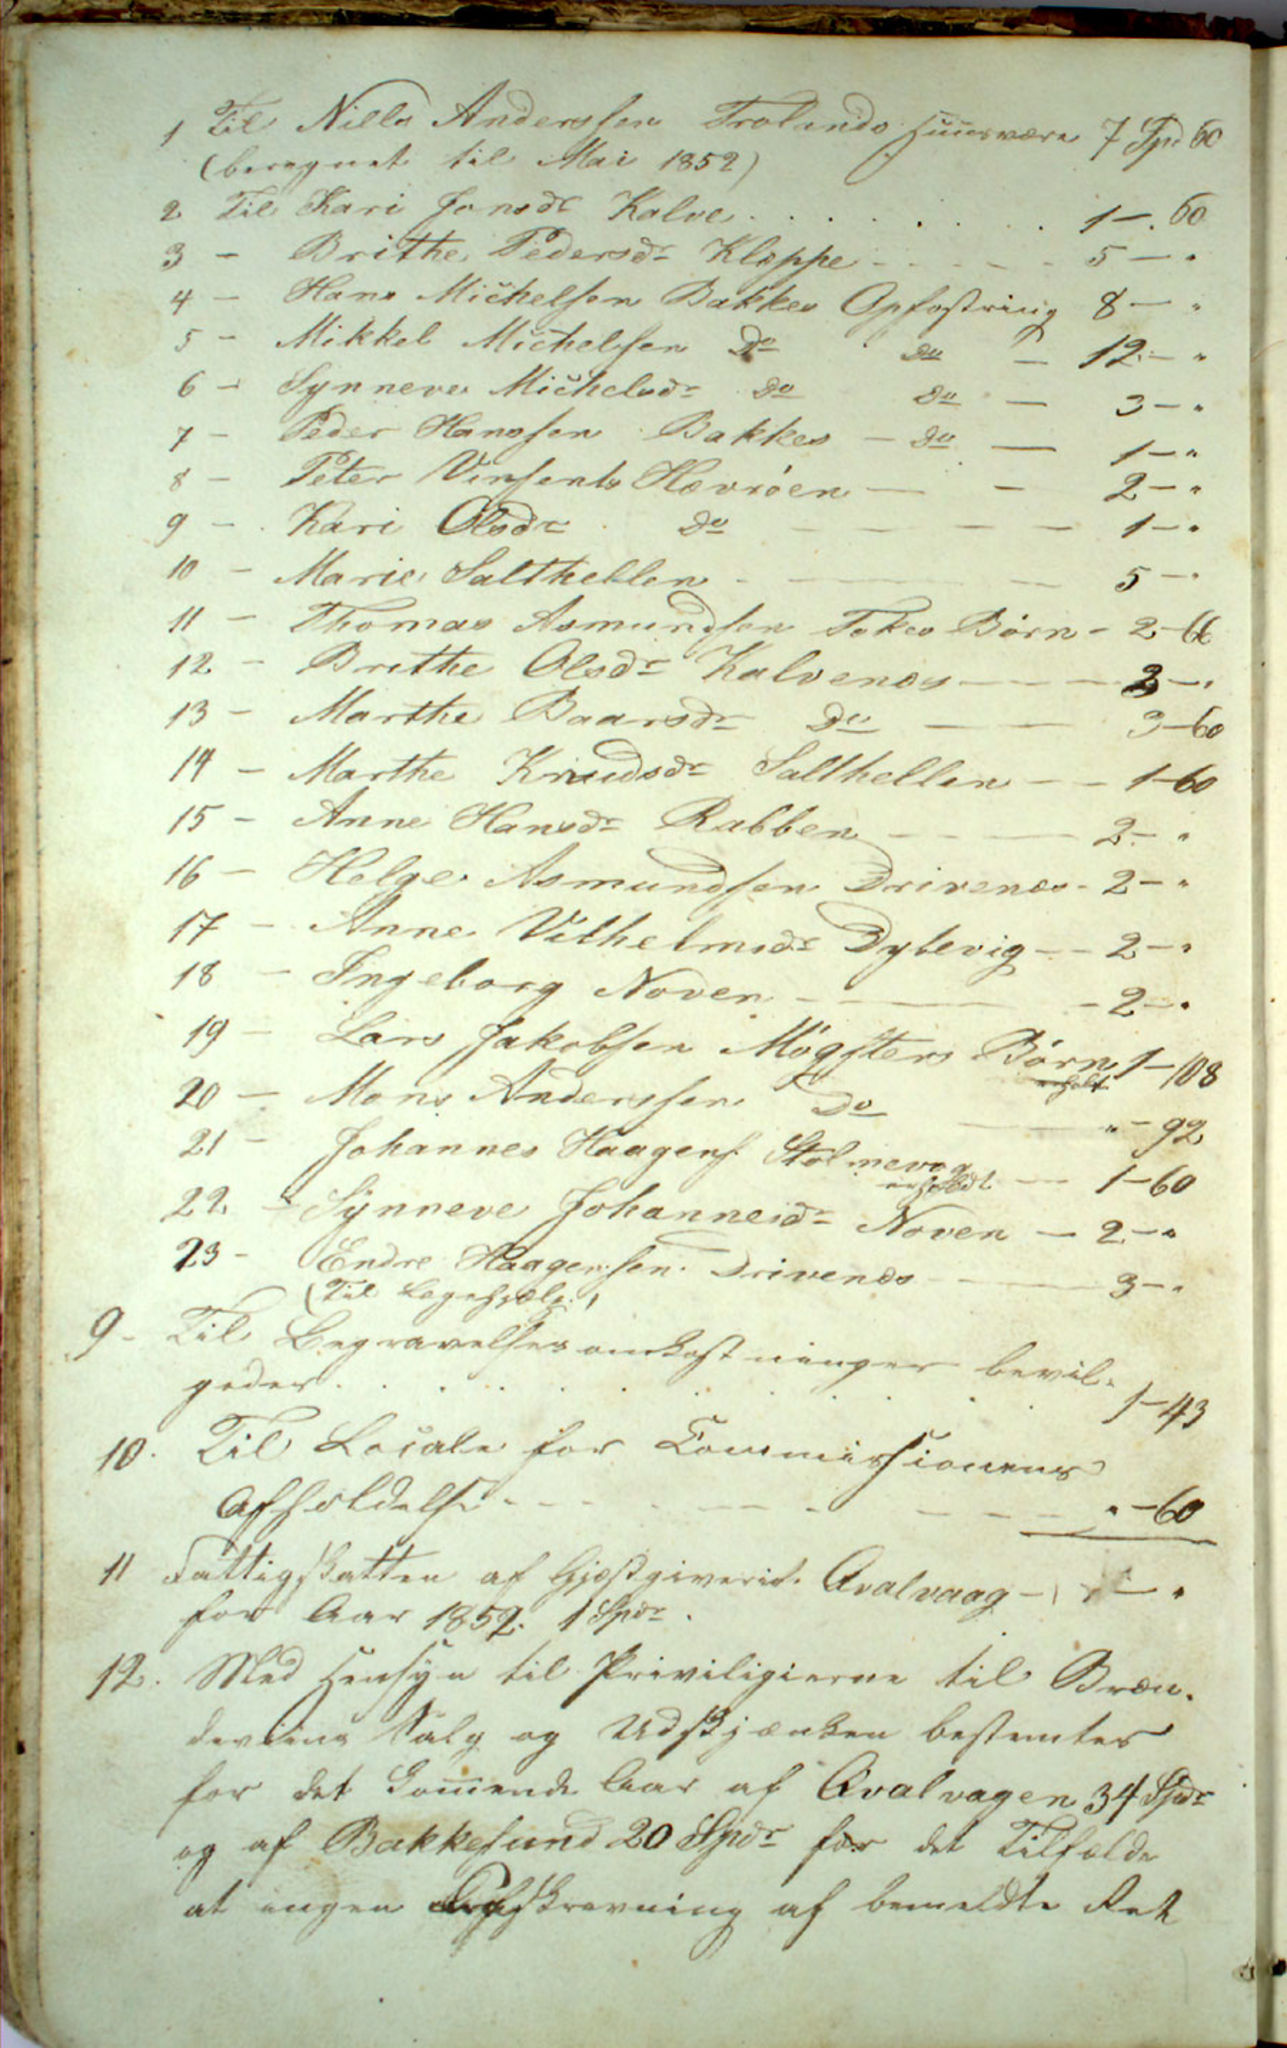 1 Til Nills Anderssen Trolands Huusværa 7 Spd 60
(beregnet til Mai 1852)
2 Til Kari Jonsdr Kalve . . . . . . . 1 - 60
3 - Brithe Pedersdr Kleppe - - - - - 5 - "
4 - Hans Michelsen Bakkes Opfostring 8 - "
5 - Mikkel Michelsen Do Do - 12 - "
6 - Synneve Michelsdr Do Do - 3 - "
7 - Peder Hanssen Bakkes - Do - 1 - "
8 - Peter Vinsents Hevrøen - - 2 - "
9 - Kari Olsdr Do - - - - 1 - "
10 - Marie Salthellen - - - 5 - "
11 - Thomas Asmundsen Tokes Børn - 2 - 66
12 - Brithe Olsdr Kalvenes - - - 2 - "
13 - Marthe Baarsdr Do - - 3 - 60
14 - Marthe Knudsdr Salthellen - - 1 - 60
15 - Anne Hansdr Rabben - - - 2 - "
16 - Helge Asmundsen Drivenes - 2 - "
17 - Anne Vilhelmsdr Dybevig - - 2 - "
18 - Ingeborg Noven - - - 2 - "
19 - Lars Jakobsen Møgsters Børn 1 - 108
20 - Mons Anderssen Do - - " - 92
21 - Johannes Haagens. Stolmevog - 1 - 60
22 - Synneve Johannesdr Noven - 2 - "
23 - Endre Haagensen Drivenes - 3 - "
(Til Lægehjælp.)
9 - Til Begravelsesomkostninger bevil-
geder . . . . . . . . . 1 - 43
10. Til Locale for Commissionens
Afholdelse - - - - - - " - 60
11 Fattigskatten af Gjæstgiveriet Qvalvaag - - "
for Aar 1852. 1 Spdr.
12. Med Hensyn til Priviligierne til Bræn-
deviins Salg og Udskjænken bestemtes
for det kommende Aar af Qvalvagen 34 Spdr
og af Bakkesund 20 Spdr for det Tilfælde
at ingen Afskrevning af bemeldte Ret